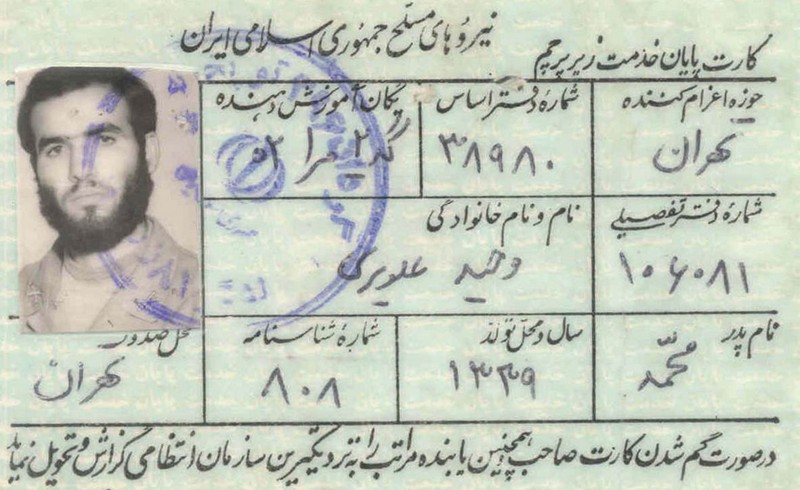 نیروهای مسلح جمهوری اسلامی ایران
کارت پایان خدمت زیر پرچم
حوزه اعزام کننده
تهران
شماره دفتر اساس
۳۸۹۸۰
یگان آموزش دهنده
شماره دفتر تفصیلی
۱۰۶۰۸۱
نام و نام خانوادگی
وحید علویری
نام پدر
محمد
سال و محل تولد
۱۳۳۹
شماره شناسنامه
۸۰۸
محل صدور
تهران
در صورت گم شدن کارت صاحب و همچنین یابنده مراتب را به نزدیکترین سازمان انتظامی گزارش و تحویل نماید